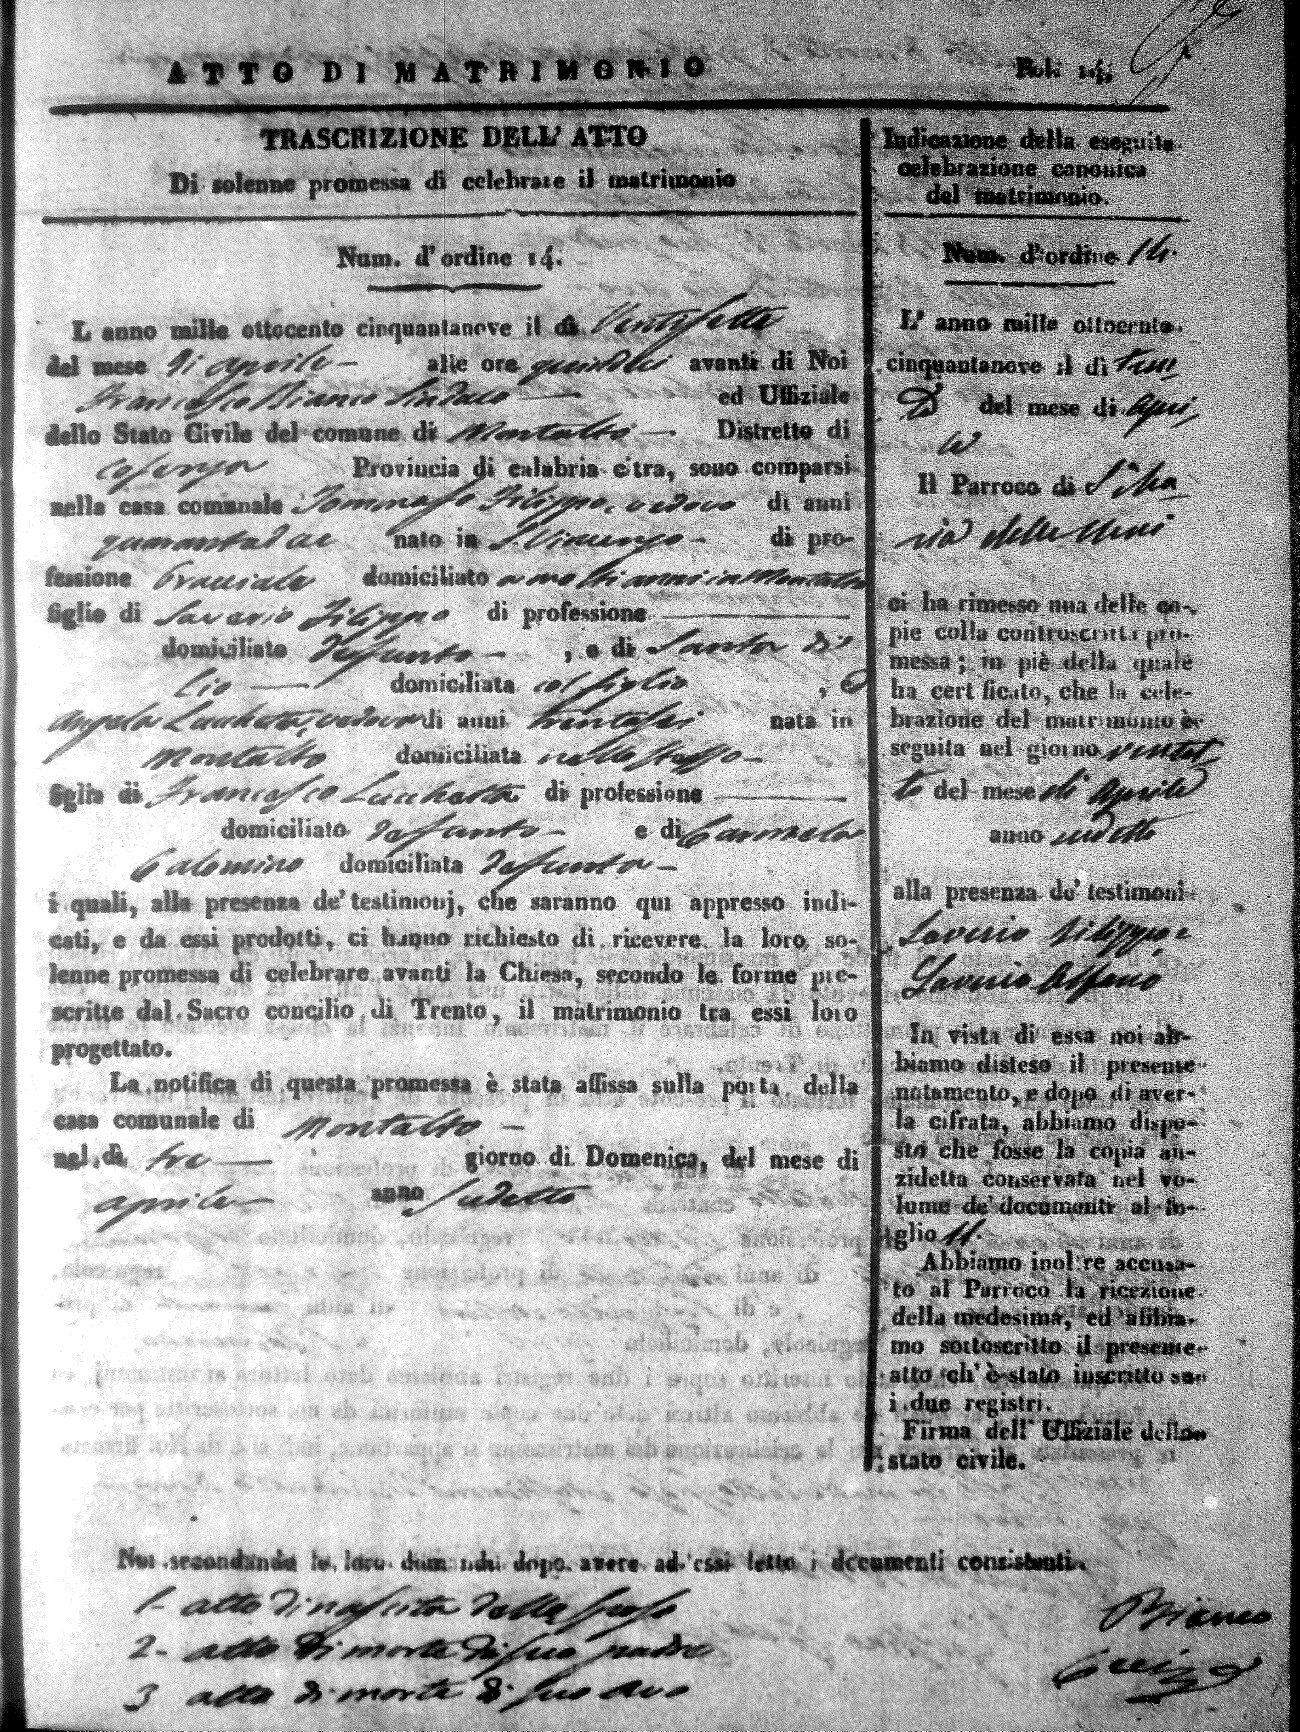 ATTO DI MATRIMONIO
TRASCRIZIONE DELL' ATTO
Di solenne promessa di celebrare il matrimonio
Num. d'ordine 14.
L anno mille ottocento cinquantanove il dì Ventisette
del mese di aprile - alle ore quindici avanti di Noi
Francesco Bianco Sindaco - ed Uffiziale
dello Stato Civile del comune di Montalto - Distretto di
Cosenza Provincia di calabria citra, sono comparsi
nella casa comunale Tommaso Filippo, vedovo di anni
quarantadue nato in S. Vincenzo - di pro-
fessione Bracciale domiciliato a molti anni in Montalto
figlio di Saverio Filippo di professione
domiciliato defunto - , e di Santa di
Lio - domiciliata col figlio , e
Angela Lucchetta, vedova di anni trentasei nata in
Montalto domiciliata nello stesso -
figlia di Francesco Lucchetta di professione
domiciliato defunto - e di Carmela
Calomino domiciliata defunta -
i quali, alla presenza de' testimonj, che saranno qui appresso indi-
cati, e da essi prodotti, ci hanno richiesto di ricevere la loro so-
lenne promessa di celebrare avanti la Chiesa, secondo le forme pre-
scritte dal Sacro concilio di Trento, il matrimonio tra essi loro
progettato.
La notifica di questa promessa è stata affissa sulla porta della
casa comunale di Montalto -
nel dì tre - giorno di Domenica, del mese di
aprile - anno sudetto
Indicazione della eseguita
celebrazione canonica
del matrimonio.
Num. d'ordine 14.
L' anno mille ottocento
cinquantanove il dì tren
ta del mese di apri
le
Il Parroco di S. Ma
ria delle
ci ha rimesso una delle co-
pie colla controscritta pro-
messa; in piè della quale
ha certificato, che la cele-
brazione del matrimonio è
seguita nel giorno ventot
to del mese di Aprile
anno sudetto
alla presenza de' testimoni
Saverio Filippo e
Saverio Alfano
In vista di essa noi ab-
biamo disteso il presente
notamento, e dopo di aver-
la cifrata, abbiamo dispo-
sto che fosse la copia an-
zidetta conservata nel vo-
lume de' documenti al fo-
glio 11.
Abbiamo inoltre accusa-
to al Parroco la ricezione
della medesima, ed abbia-
mo sottoscritto il presente
atto ch' è stato inscritto su-
i due registri.
Firma dell' Uffiziale dello
stato civile.
Noi secondando le loro dimande dopo avere ad essi letto i documenti consistenti
1- atto di nascita dello sposo
2- atto di morte di suo padre
3 atto di morte di suo avo
Bianco